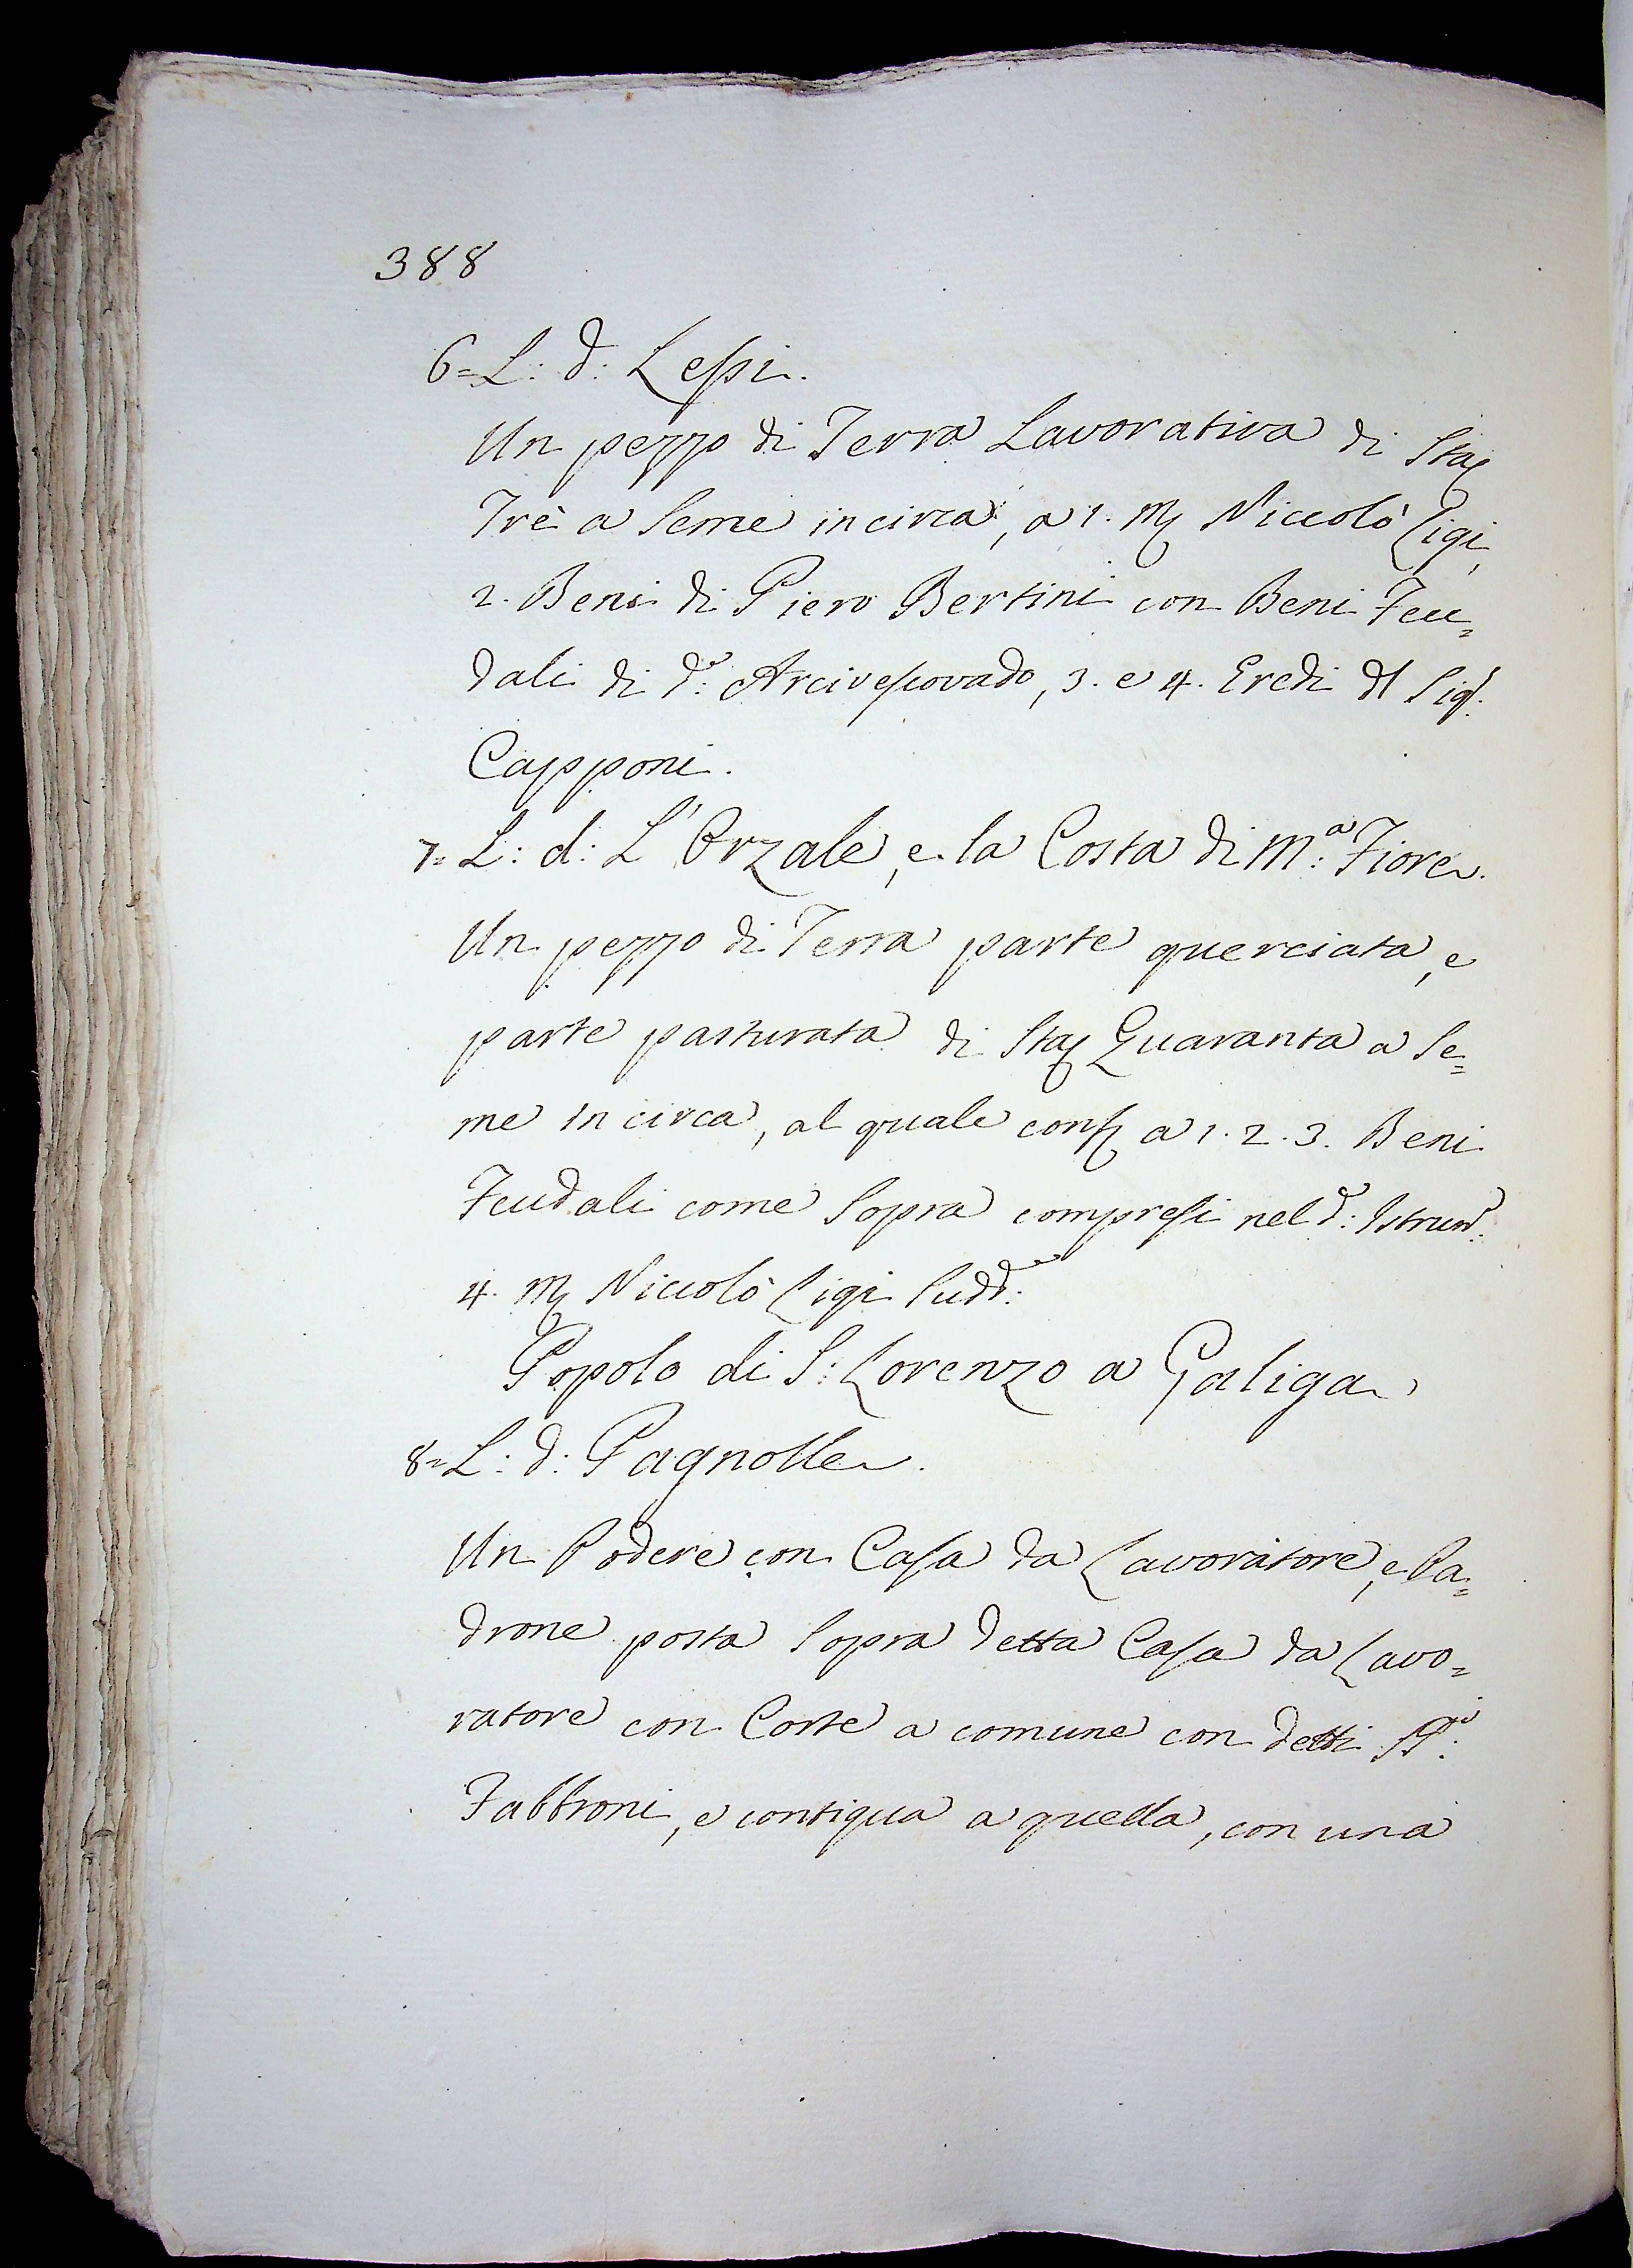 388
6= L: d: Lessi.
Un pezzo di Terra Lavorativa di Sta
Trè a Seme in circa, a 1. M Niccolò Ligi,
2. Beni di Piero Bertini con Beni Feu=
dali di d.º Arcivescovado, 3. e 4. Eredi dl Sigr:
Capponi.
7= L: d: L'Orzale, e la Costa di M:ª Fiore.
Un pezzo di Terra parte querciata, e
parte pasturata di Sta Quaranta a Se=
me in circa, al quale conf a 1. 2. 3. Beni
Feudali come sopra compresi nel d:º Istrumº:
4. M Niccolò Ligi Sudd:º
Popolo di S: Lorenzo a Galiga
8= L: d: Pagnolle.
Un Podere con Casa da Lavoratore, e Pa=
drone posta sopra detta Casa da Lavo=
ratore con Corte a comune con detti SS:ri
Fabbroni, e contigua a quella, con una